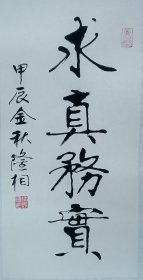 求真務實
甲辰金秋隆相